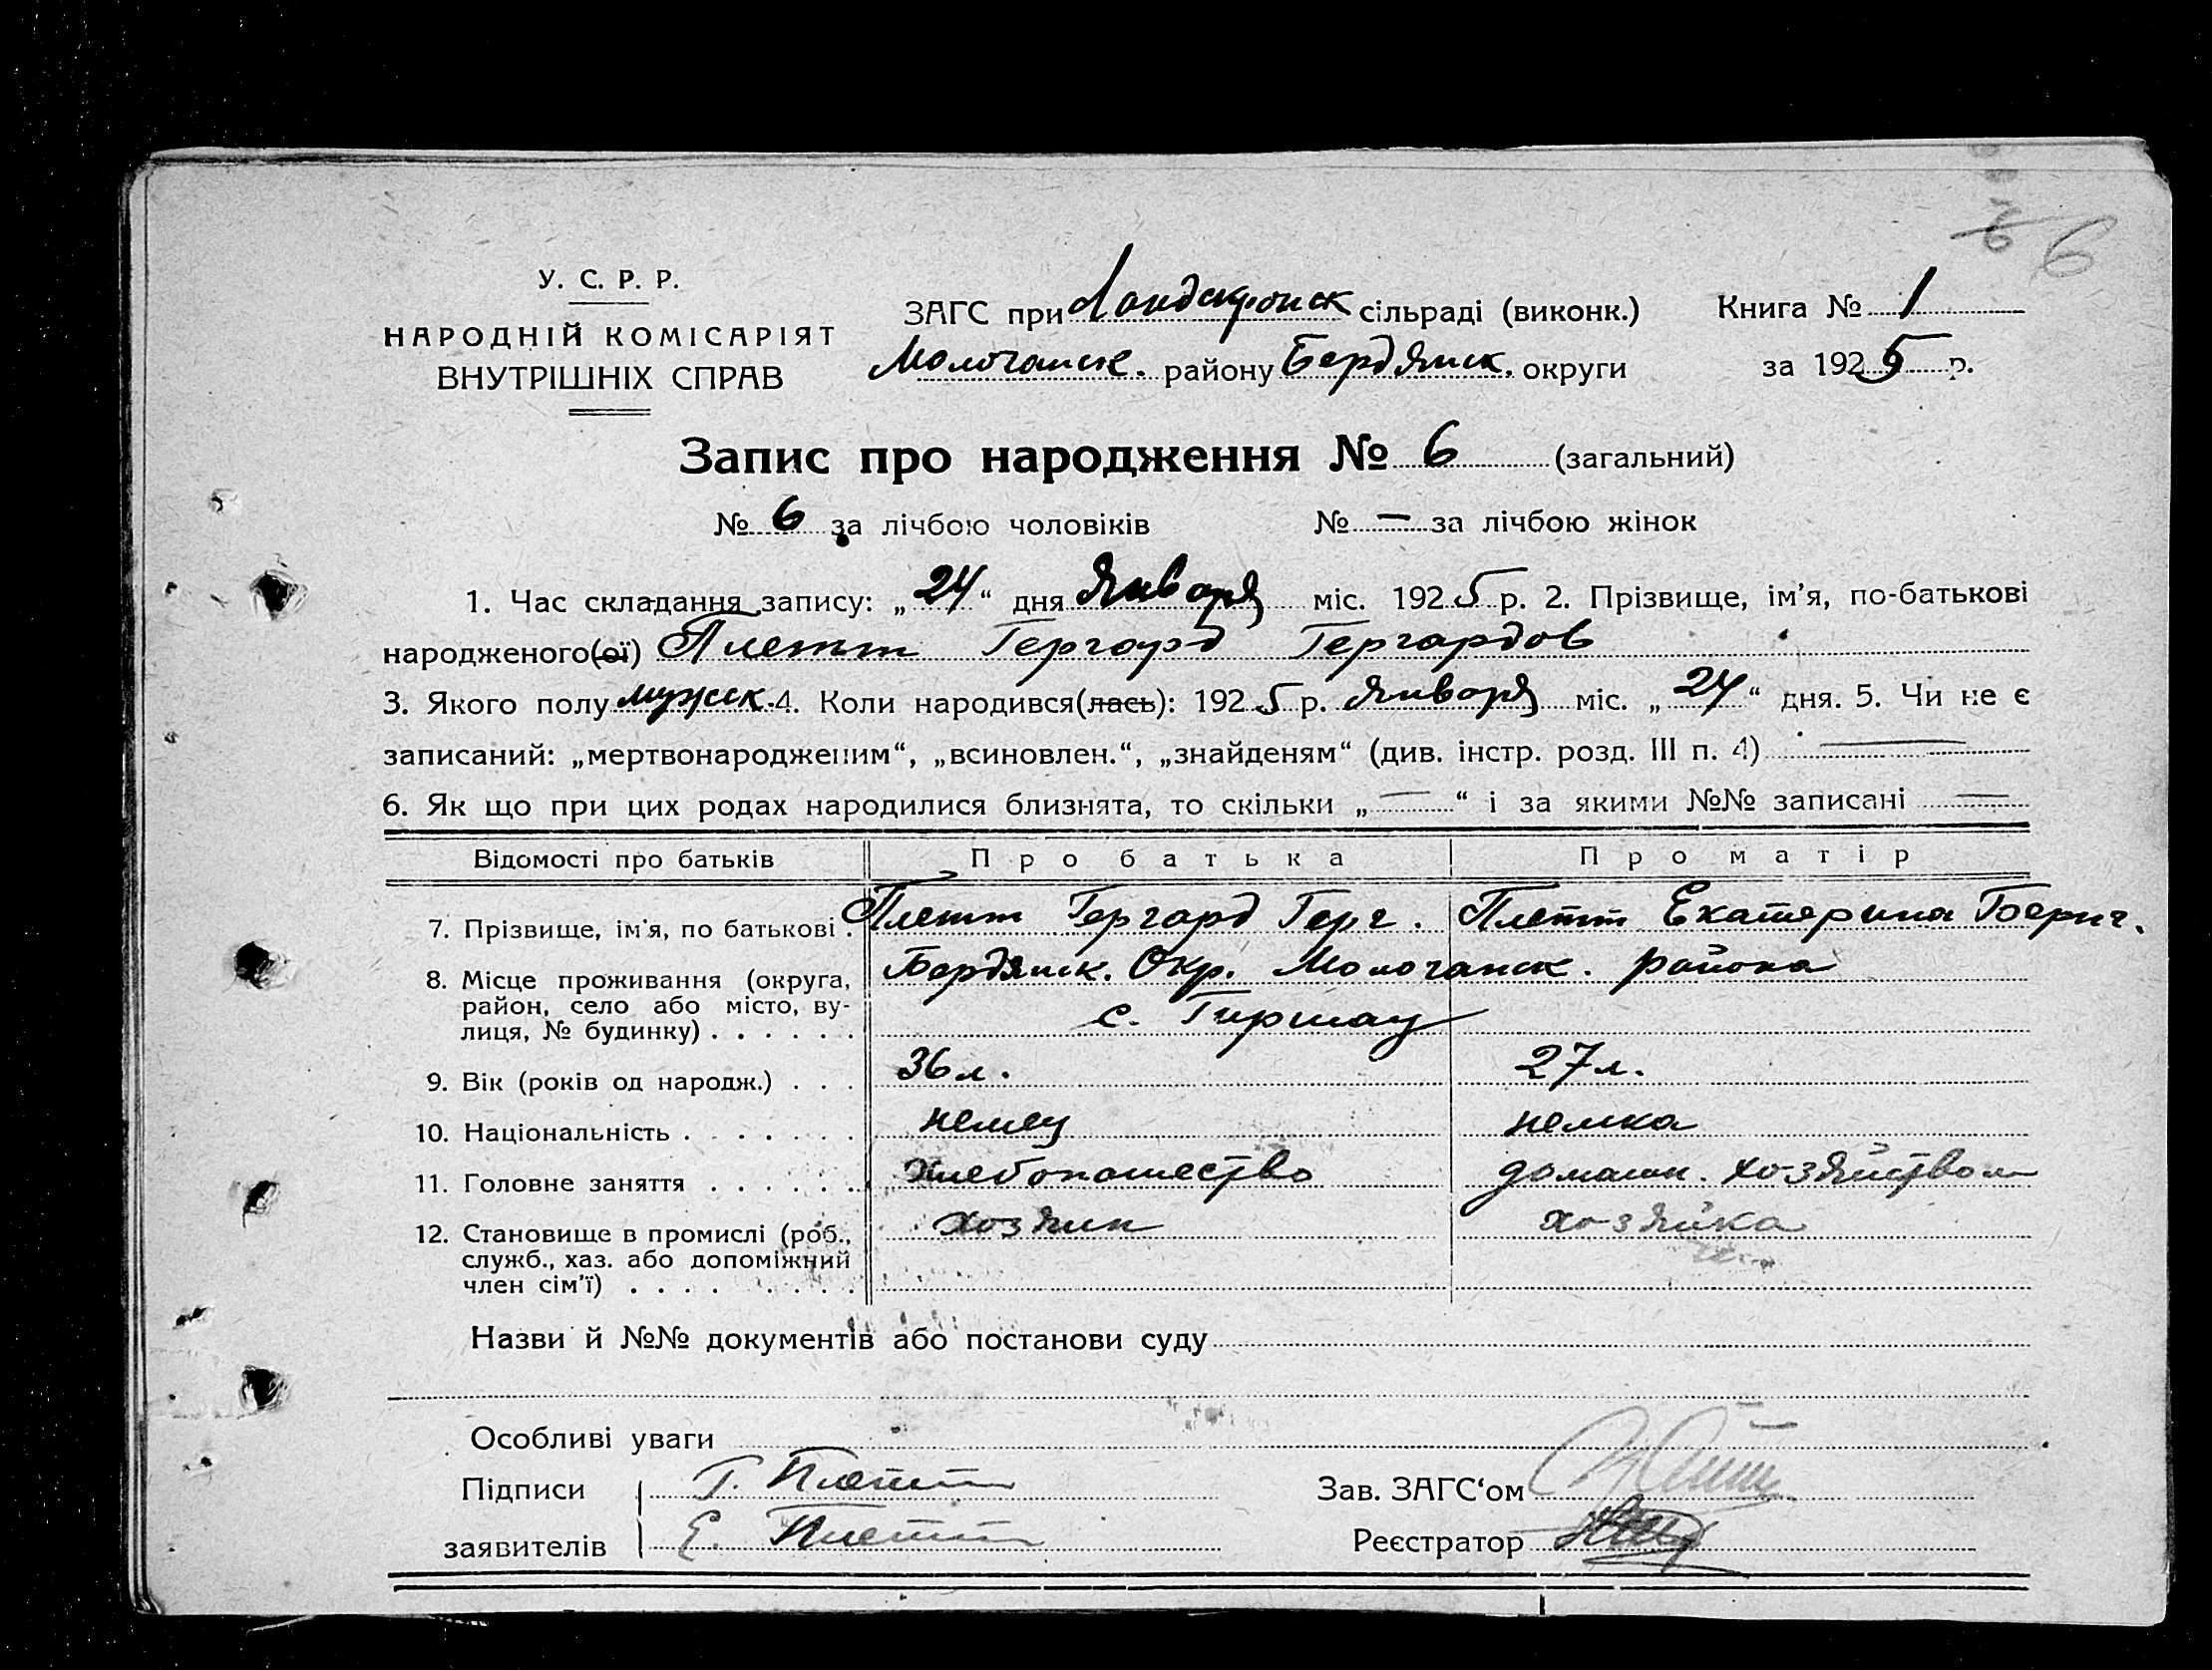 6 6
У. С. Р. Р.
НАРОДНІЙ КОМІСАРІЯТ
ВНУТРІШНІХ СПРАВ
ЗАГС при Ландскронск сільраді (виконк.)
Молочанск. району Бердянск. округи
Книга № 1
за 1925 р.
Запис про народження № 6 (загальний)
№ 6 за лічбою чоловіків № — за лічбою жінок
1. Час складання запису: „24“ дня Января міс. 1925 р. 2. Прізвище, ім'я, по-батькові
народженого(ої) Плетт Гергард Гергардов
3. Якого полу мужск. 4. Коли народився(лась): 1925 р. Января міс. „24“ дня. 5. Чи не є
записаний: „мертвонародженим“, „всиновлен.“, „знайденям“ (див. інстр. розд. III п. 4) —
6. Як що при цих родах народилися близнята, то скільки „—“ і за якими №№ записані —
Відомості про батьків Про батька Про матір
7. Прізвище, ім'я, по батькові . Плетт Гергард Герг. Плетт Екатерина
8. Місце проживання (округа, Бердянск. Окр. Молочанск. района
район, село або місто, ву- с. Гиршау
лиця, № будинку) . . . . . .
9. Вік (років од народж.) . . . 36 л. 27 л.
10. Національність . . . . . . . немец немка
11. Головне заняття . . . . . . . хлебопашество домашн. хозяйством
12. Становище в промислі (роб., хозяин хозяйка
служб., хаз. або допоміжний
член сім'ї) . . . . . . . .
Назви й №№ документів або постанови суду
Особливі уваги
Підписи Г. Плетт Зав. ЗАГС'ом
заявителів Е. Плетт Реєстратор